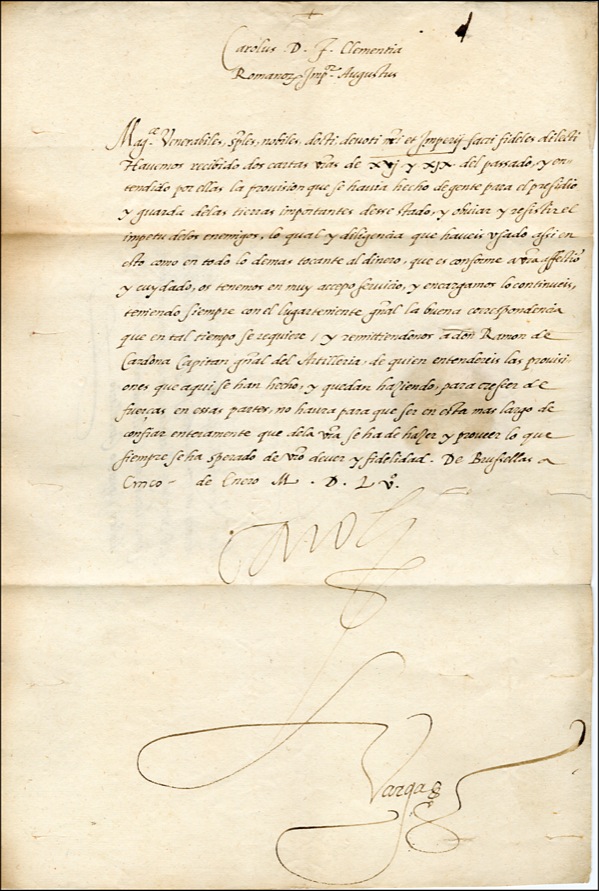 Carolus D. F. Clementia
Romanorꝫ Impr. Augustus
Magce. Venerabiles, sples, nobiles, docti, devoti nri et Imperij sacri fideles dilecti
Havemos recibido dos cartas vras de XVIJ y XIX del passado, y en-
tendido por ellas la provision que se havia hecho de gente para el presidio
y guarda delas tierras importantes desse stado, y obviar y resistir el
impetu delos enemigos, lo qual y diligencia que haveis vsado assi en
esto como en todo lo demas tocante al dinero, que es conforme a vra affection
y cuydado, os tenemos en muy accepto servicio, y encargamos lo continueis,
teniendo siempre con el lugarteniente gñal la buena correspondencia
que en tal tiempo se requiere / y remittiendonos a don Ramon de
Cardona Capitan gñal del Artilleria, de quien entendereis las provisi-
ones que aqui se han hecho, y quedan haziendo, para crescer de
fuerças en essas partes, no havra para que ser en esta mas largo de
confiar enteramente que dela vra se ha de hazer y proveer lo que
siempre se ha sperado de vro dever y fidelidad. De Brussellas a
Cinco - de Enero M. D. L V.
Carol
Vargas